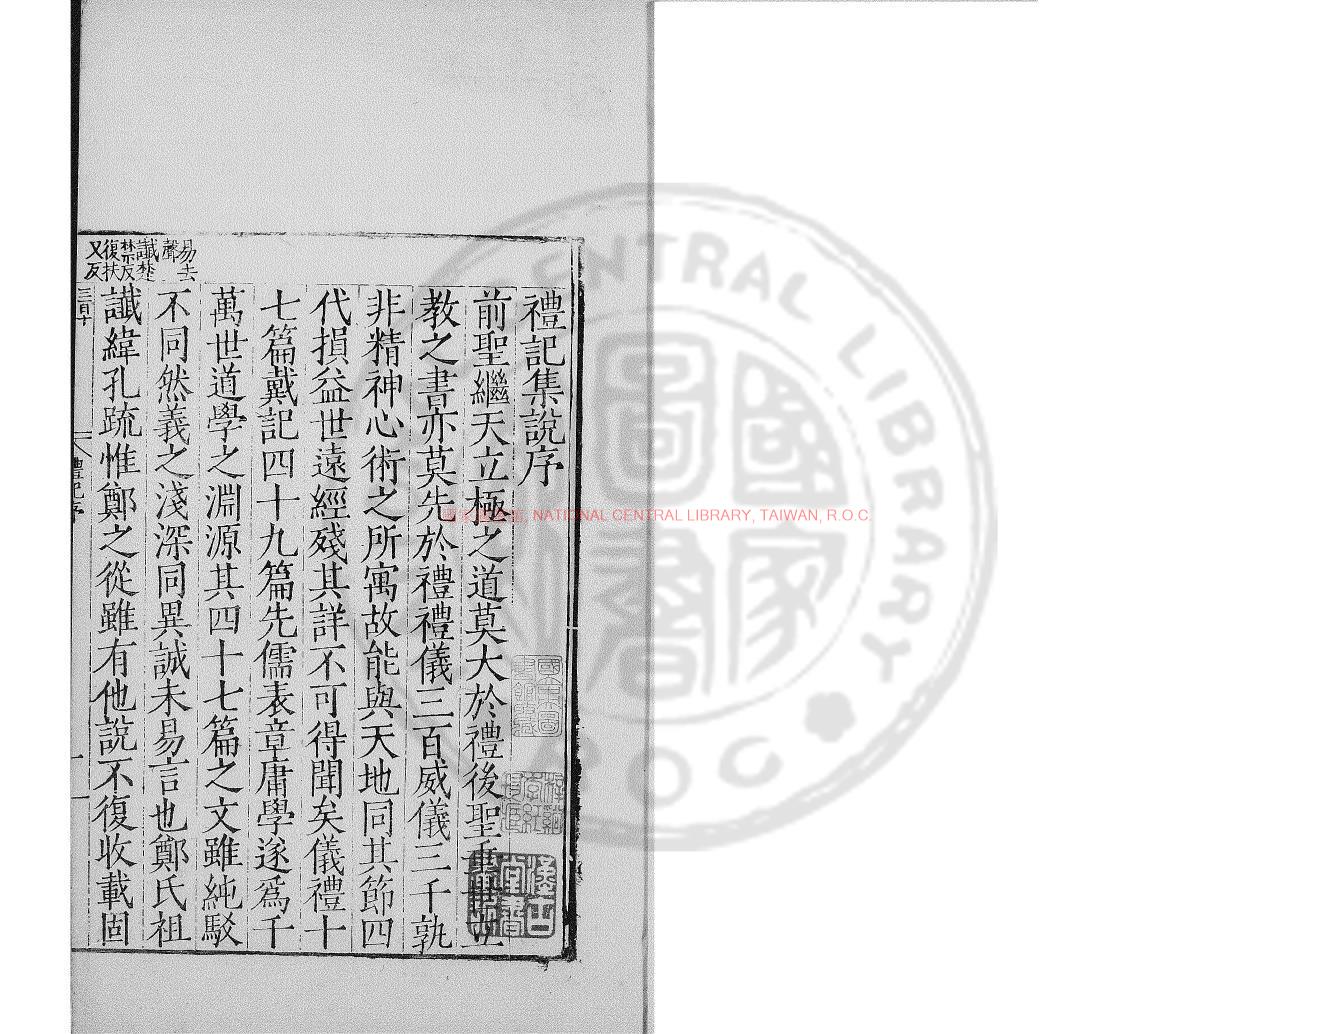 禮記集說序
前聖繼天立極之道莫大於禮後聖垂世立
教之書亦莫先於禮禮儀三百威儀三千孰
非精神心術之所寓故能與天地同其節四
代損益世遠經殘其詳不可得聞矣儀禮十
七篇戴記四十九篇先儒表章庸學遂爲千
萬世道學之淵源其四十七篇之文雖純駁
不同然義之淺深同異誠未易言也鄭氏祖
讖緯孔疏惟鄭之從雖有他說不復收載固
易去
聲
讖楚
禁反
復扶
又反
三百十
禮記序
一
國家圖書館, NATIONAL CENTRAL LIBRARY, TAIWAN, R.O.C.
CENTRAL LIBRARY
ROC